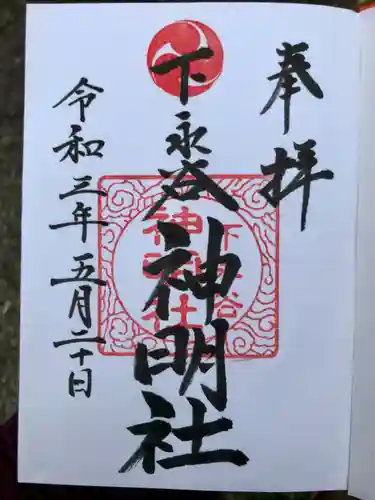 奉拝
下永谷神明社
令和三年五月二十日
下永谷
神明社